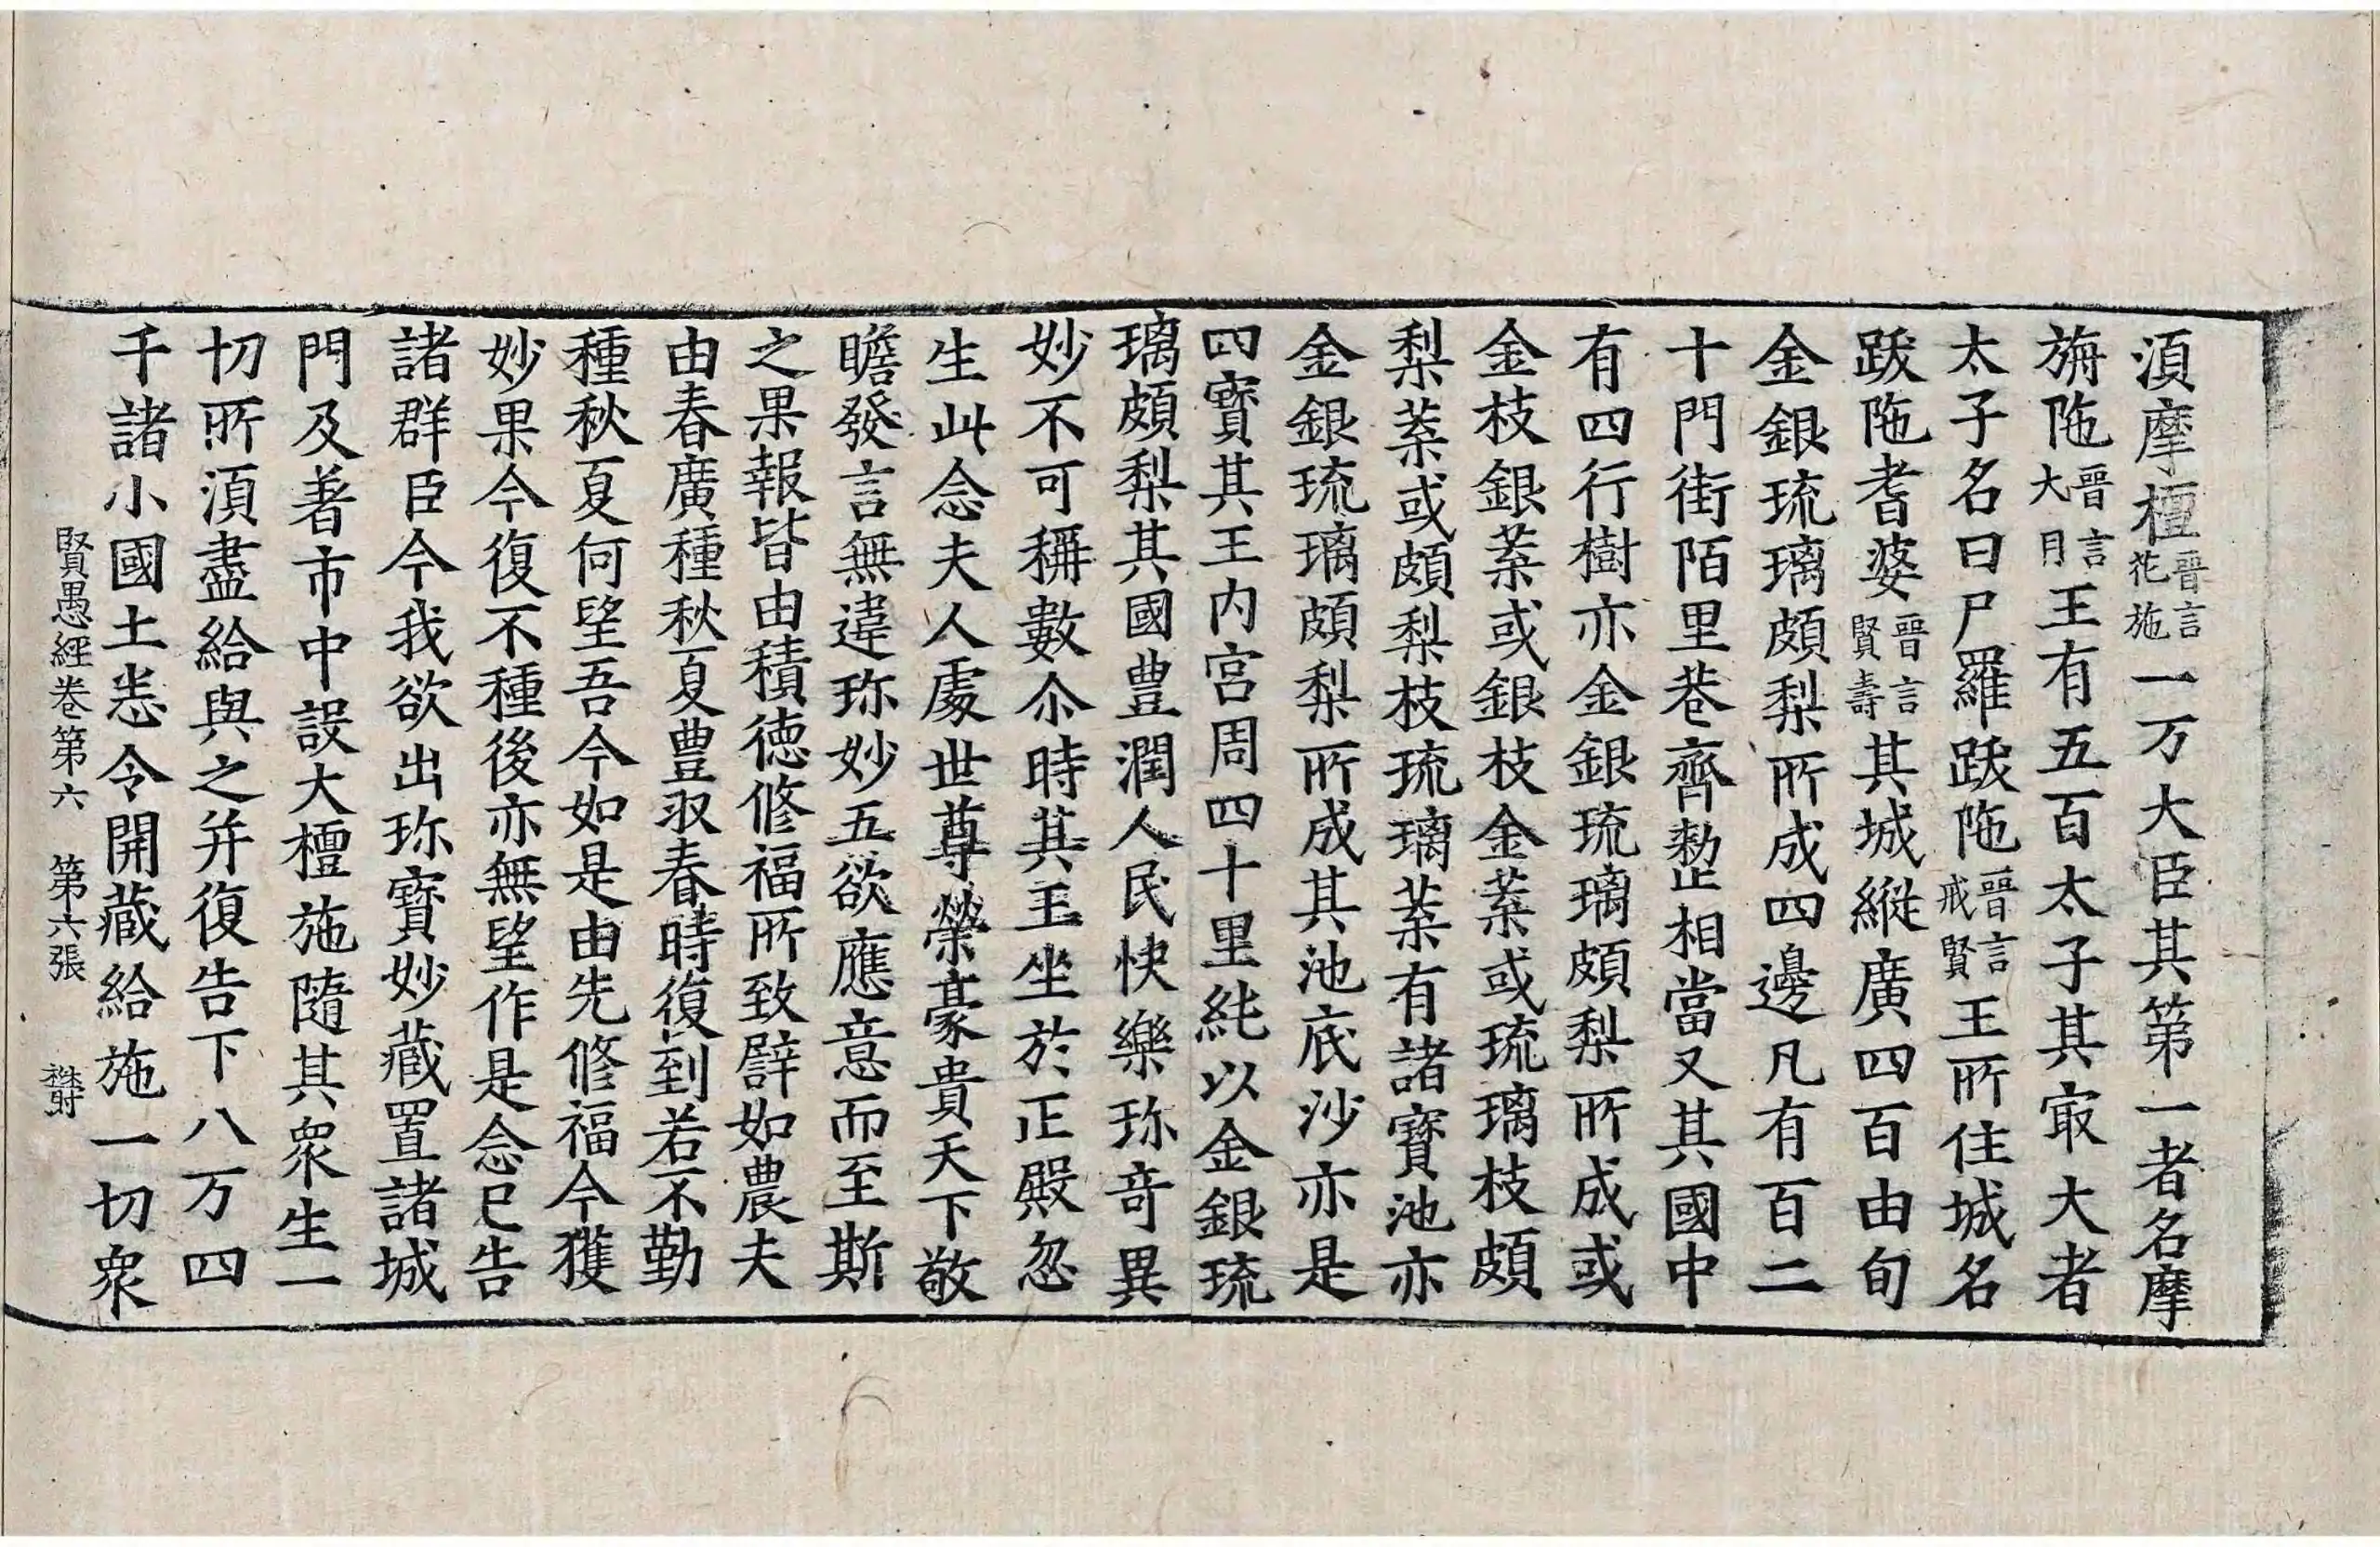 湏摩檀晉言花施一万大臣其第一者名摩
旃陁晉言大月王有五百太子其㝡大者
太子名曰尸羅跋陁晉言戒賢王所住城名
跋陁耆婆晉言賢壽其城縱廣四百由旬
金銀琉璃頗梨所成四邊凡有百二
十門街陌里巷齊整相當又其國中
有四行樹亦金銀琉璃頗梨所成或
金枝銀葉或銀枝金葉或琉璃枝頗
梨葉或頗梨枝琉璃葉有諸寶池亦
金銀琉璃頗梨所成其池底沙亦是
四寶其王内宮周四十里純以金銀琉
璃頗梨其國豊潤人民快樂珎奇異
妙不可稱數尒時其王坐於正殿忽
生此念夫人處世尊榮豪貴天下敬
瞻發言無違珎妙五欲應意而至斯
之果報皆由積德修福所致譬如農夫
由春廣種秋夏豊収春時復到若不勤
種秋夏何望吾今如是由先修福今獲
妙果今復不種後亦無望作是念已告
諸群臣今我欲出珎寶妙藏置諸城
門及著市中設大檀施隨其衆生一
切所湏盡給與之并復告下八万四
千諸小國土悉令開藏給施一切衆
賢愚經卷第六 第六張